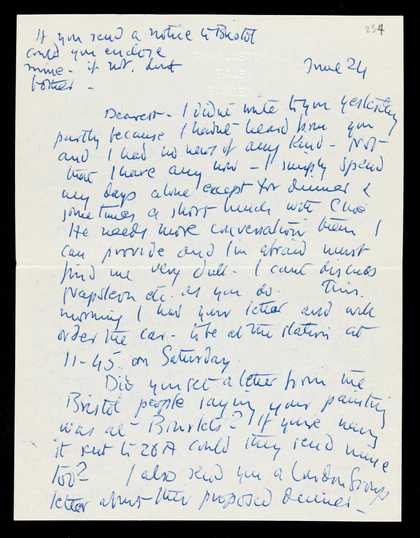 If you send a notice to Bristol
could you enclose
mine - if not, dont
bother -
234
June 24
Dearest - I didnt write to you yesterday
partly because I hadnt heard from you
and I had no news of any kind - Not
that I have any now - I simply spend
my days alone except for dinner &
sometimes a short lunch with Clive
He needs more conversation than I
can provide and I'm afraid must
find me very dull - I cant discuss
Napoleon etc. as you do. This
morning I had your letter and will
order the car - to be at the station at
11-45. on Saturday.
Did you get a letter from the
Bristol people saying your painting
was at - ? If youre having
it sent to 28A could they send mine
too? I also send you a London Group
letter about their proposed dinner -